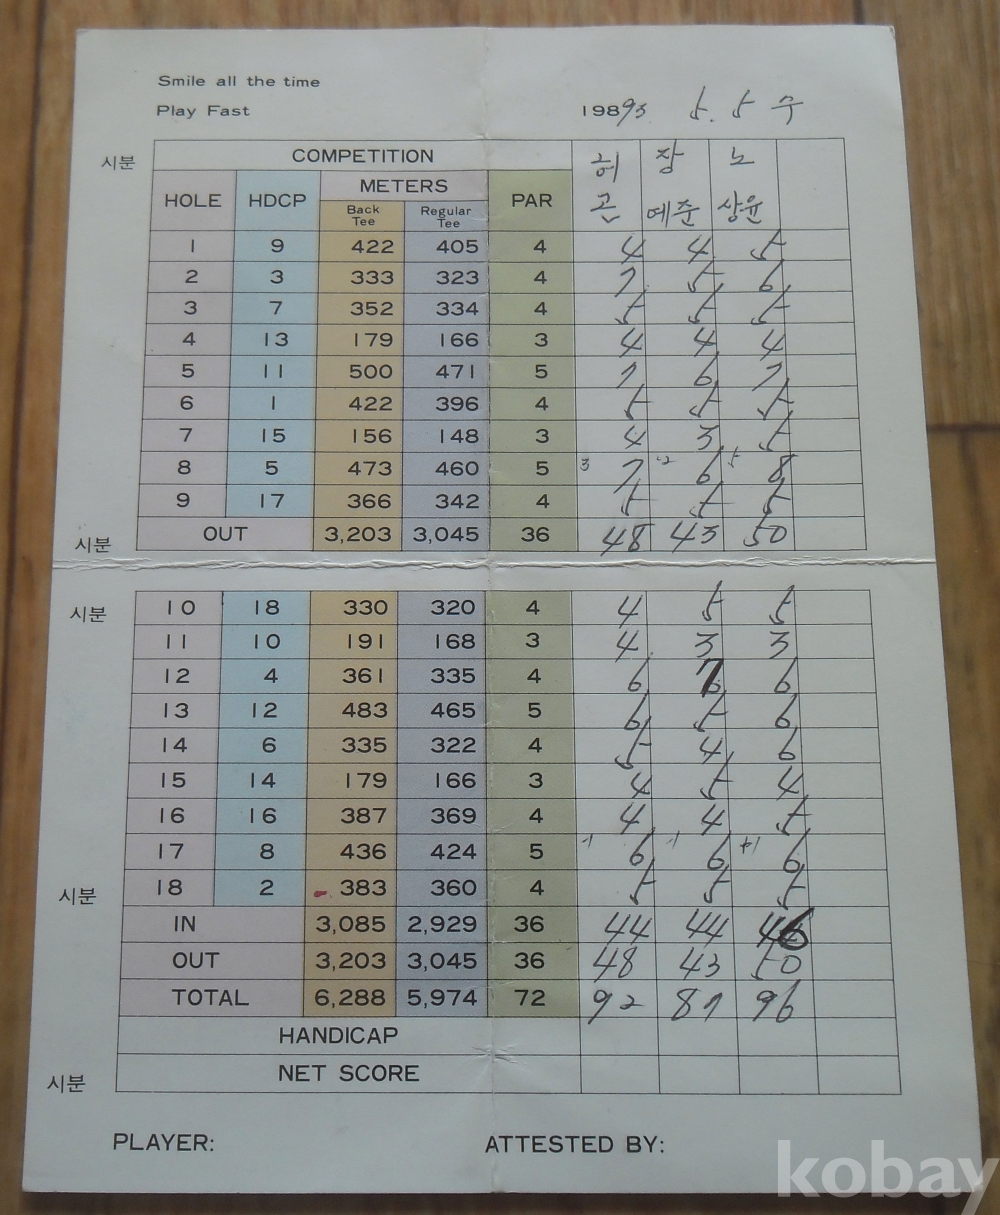 Smile all the time
Play Fast 198993. 5. 5
시분 COMPETITION 허 곤 장 예준 노 상윤
HOLE HDCP METERS PAR
Back Tee Regular Tee
1 9 422 405 4 4 4 5
2 3 333 323 4 7 5 6
3 7 352 334 4 5 5 5
4 13 179 166 3 4 4 4
5 11 500 471 5 7 6 7
6 1 422 396 4 5 5 5
7 15 156 148 3 4 3 5
8 5 473 460 5 3 7 6 5 8
9 17 366 342 4 5 5 5
시분 OUT 3,203 3,045 36 48 43 50
시분 10 18 330 320 4 4 5 5
11 10 191 168 3 4 3 3
12 4 361 335 4 6 7 6
13 12 483 465 5 6 5 6
14 6 335 322 4 5 4 6
15 14 179 166 3 4 5 4
16 16 387 369 4 4 4 5
17 8 436 424 5 -1 6 -1 6 +1 6
시분 18 2 383 360 4 5 5 5
IN 3,085 2,929 36 44 44 46
OUT 3,203 3,045 36 48 43 50
TOTAL 6,288 5,974 72 92 87 96
HANDICAP
시분 NET SCORE
PLAYER: ATTESTED BY:
kobay